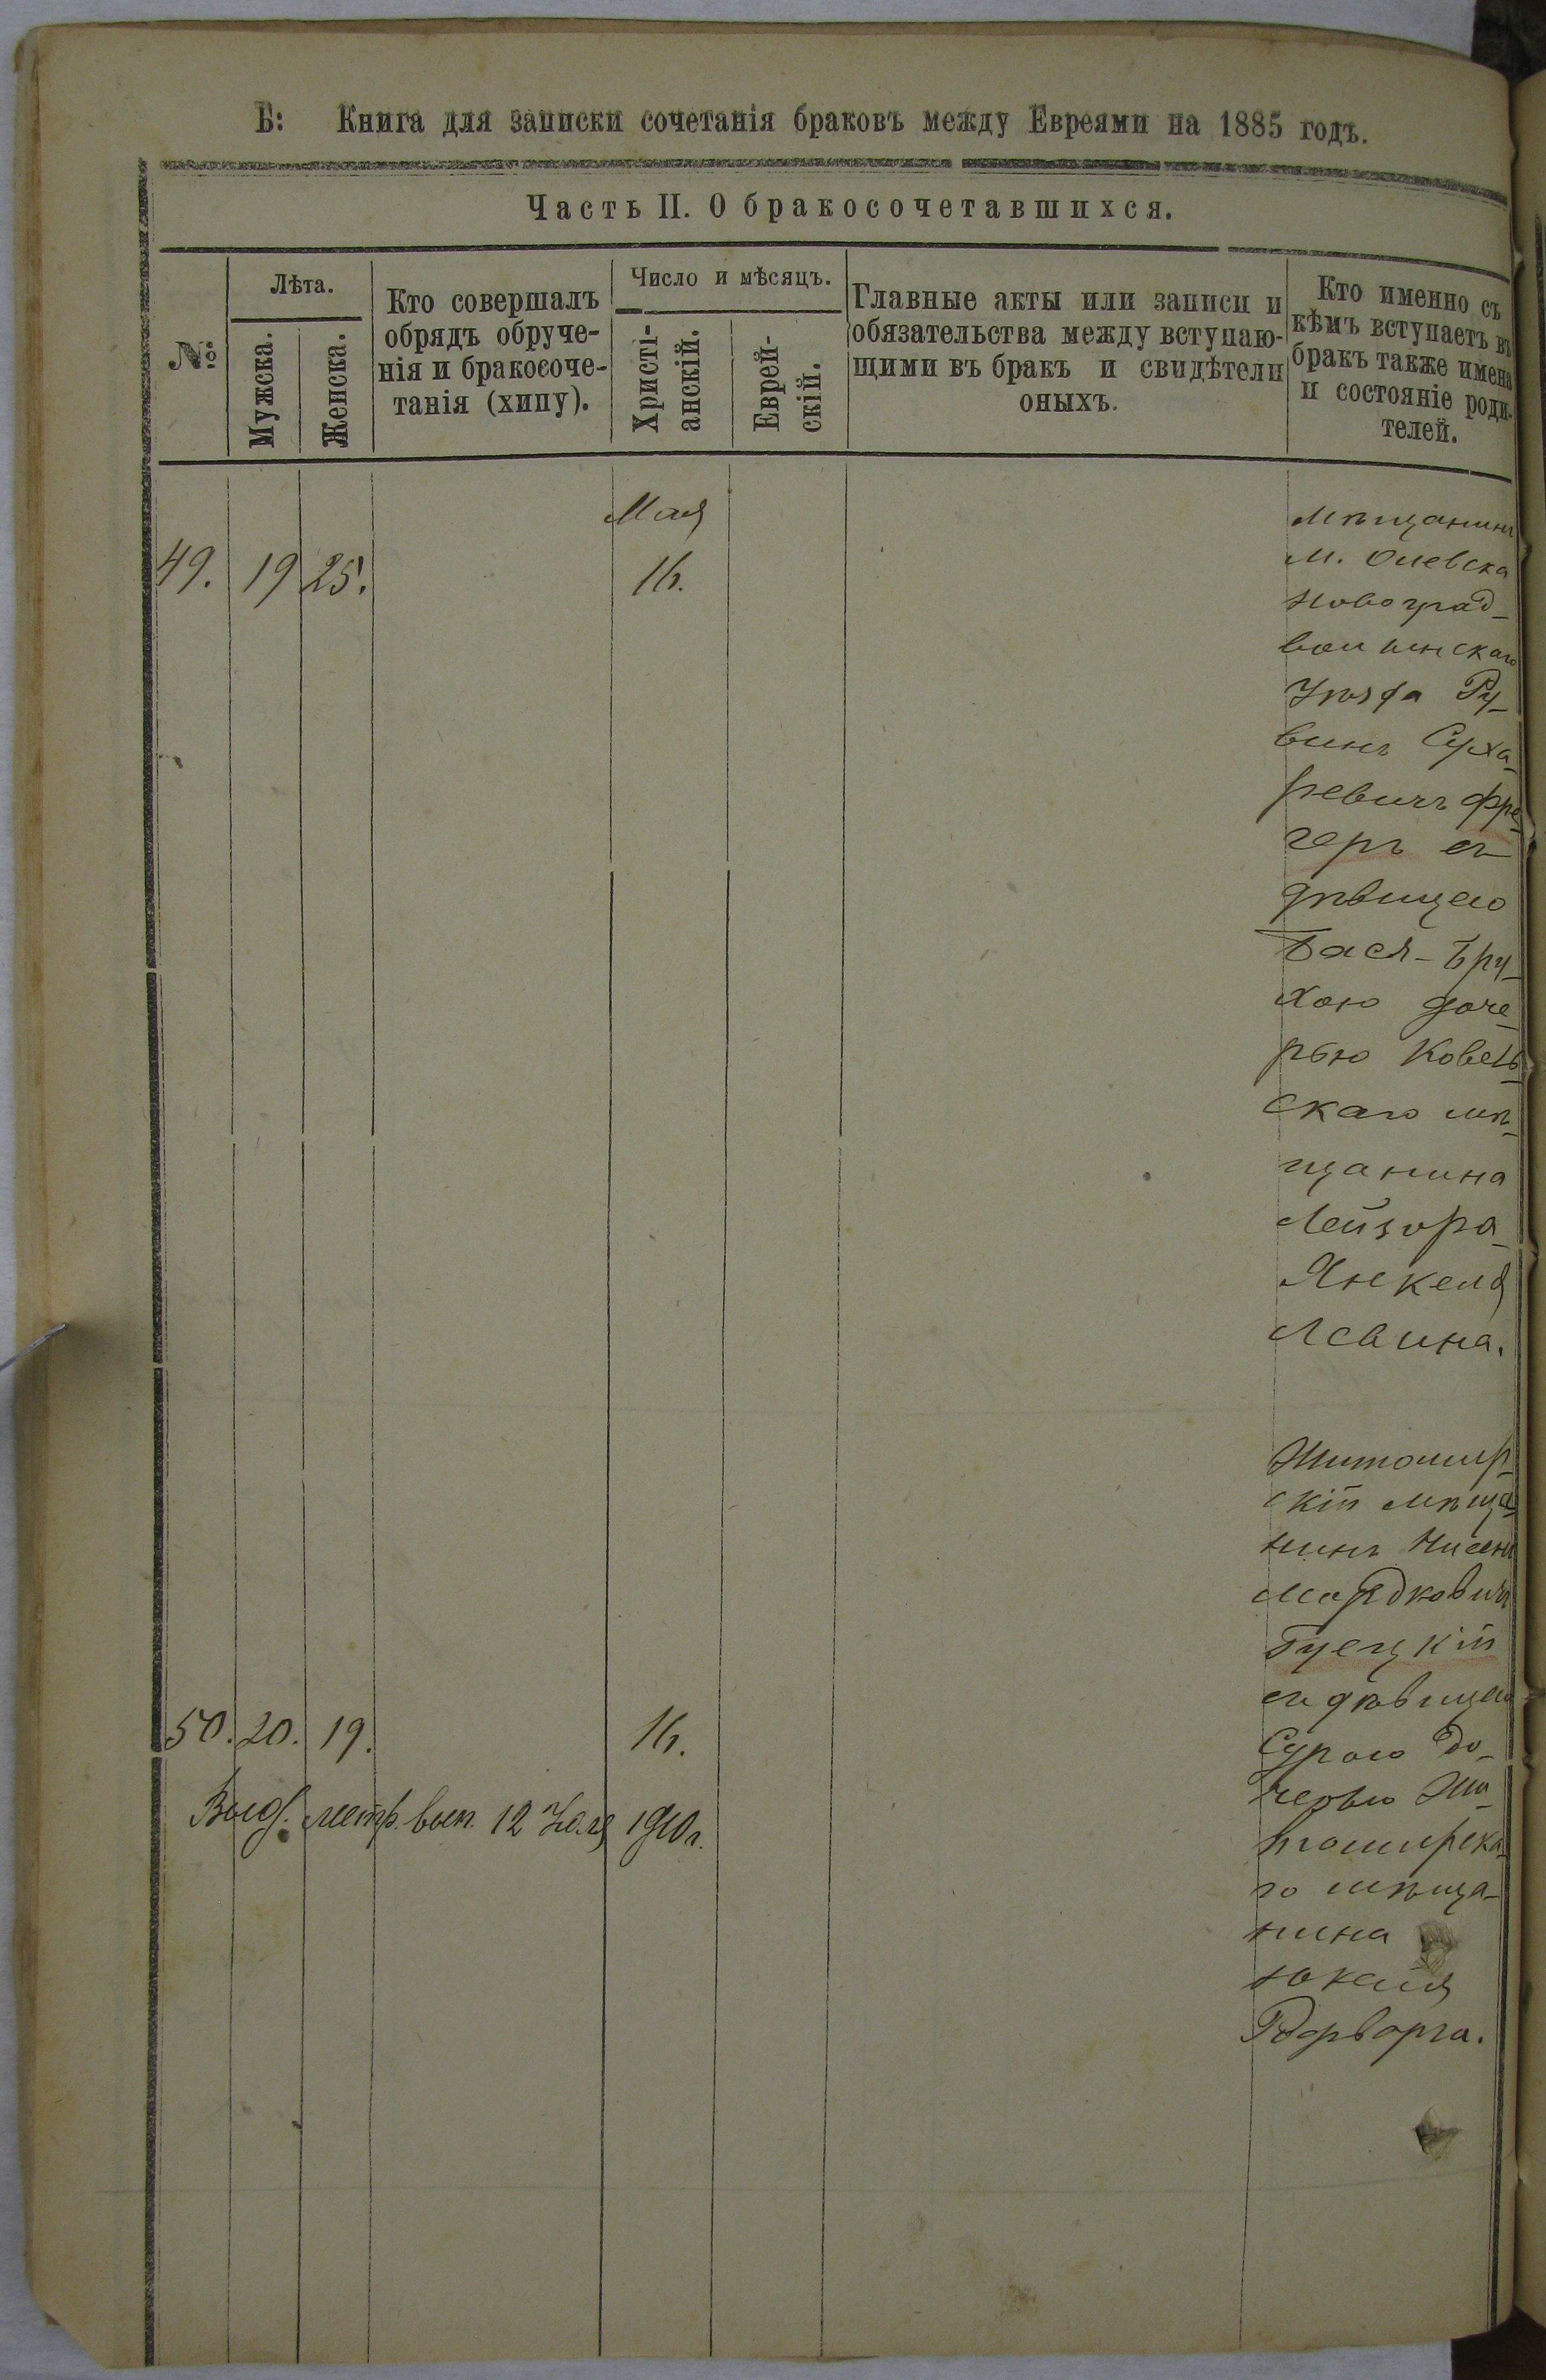 Б: Книга для записки сочетанія браковъ между Евреями на 1885 годъ.
Часть II. О бракосочетавшихся.
№
Лѣта.
Мужска.
Женска.
Кто совершалъ
обрядъ обруче-
нія и бракосоче-
танія (хипу).
Число и мѣсяцъ.
Христі-
анскій.
Еврей-
скій.
Главные акты или записи и
обязательства между вступаю-
щими въ бракъ и свидѣтели
оныхъ.
Кто именно съ
кѣмъ вступаетъ въ
бракъ также имена
и состояніе роди-
телей.
49. 19 25.
Мая
16.
Мѣщанинъ
м. Олевска
Новоград-
волынскаго
Уѣзда Ру-
винъ Суха-
ревичъ Фре-
геръ съ
дѣвицею
Бася-Бру-
хою доче-
рью Ковель-
скаго мѣ-
щанина
Лейзора-
Янкеля
Левина.
50. 20. 19. 16.
Выд. метр. вып. 12 1910 г.
Житомир-
скій мѣща-
нинъ Нисенъ
Мордковичъ
съ дѣвицею
Сурою до-
черью Жи-
томирска-
го мѣща-
нина